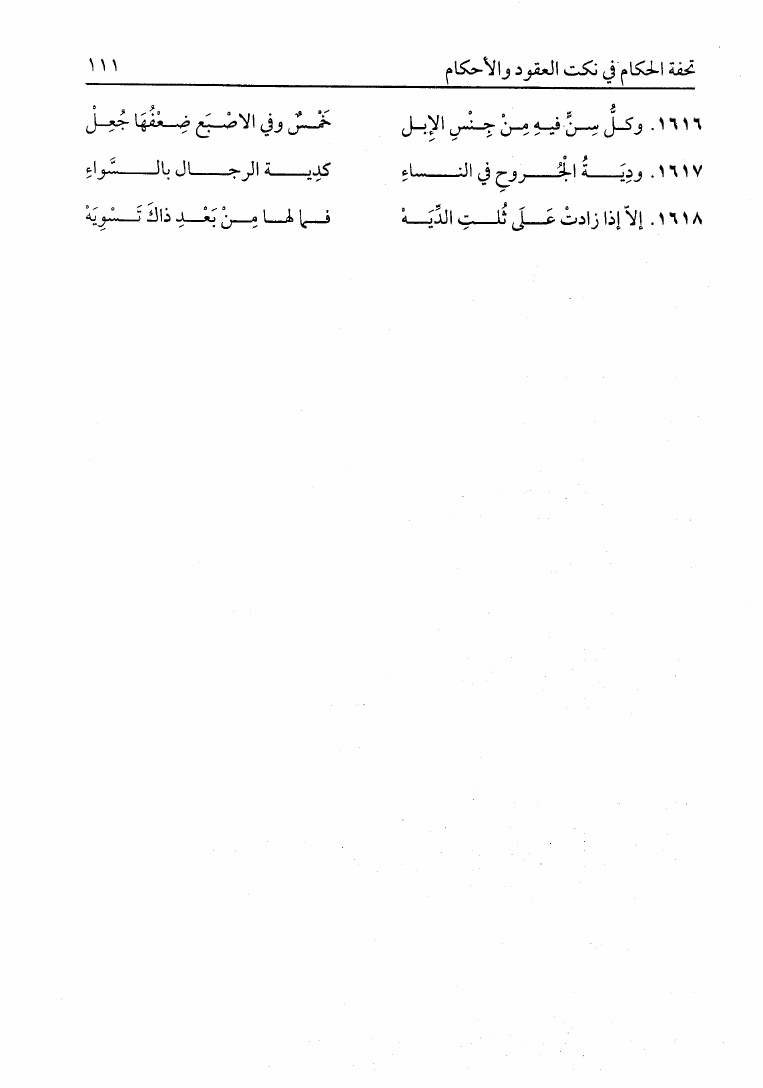 تحفة الحكام في نكت العقود والأحكام ١١١
١٦١٦. وكلُّ سِنٍّ فيهِ مِنْ جِنْسِ الإِبل خَمْسٌ وفي الاصْبَعِ ضِعْفُهَا جُعِلْ
١٦١٧. ودِيَةُ الجُروحِ في النساءِ كدِية الرجال بالسَّواءِ
١٦١٨. إلاّ إذا زادتْ عَلَى ثُلثِ الدِّيَهْ فما لها مِنْ بَعْدِ ذاكَ تَسْوِيَهْ